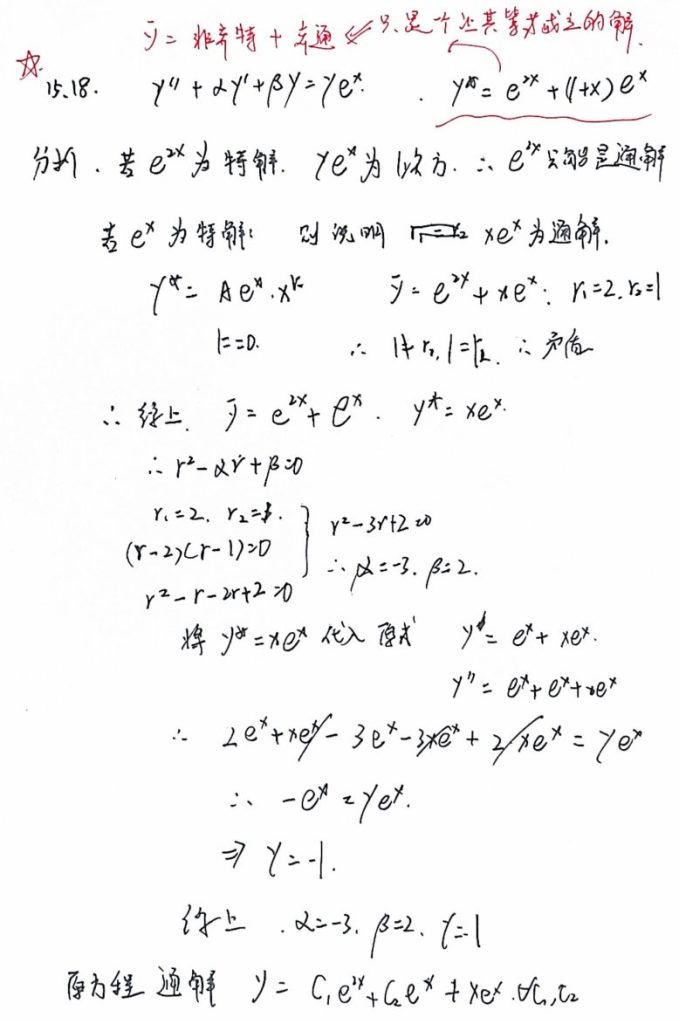 ȳ = 非齐特 + 齐通 ↙ 只是个让其等式成立的解.
☆ 15.18. y'' + αy' + βy = γe^x. y* = e^{2x} + (1+x)e^x
分析. 若 e^{2x} 为特解. γe^x 为1次方. ∴ e^{2x} 只能是通解
若 e^x 为特解: 则说明 xe^x 为通解.
y* = Ae^x·x^k ȳ = e^{2x} + xe^x: r₁=2, r₂=1
k=0. ∴ 1≠r₁, 1=r₂. ∴ 矛盾
∴ 综上. ȳ = e^{2x} + e^x. y* = xe^x.
∴ r² - αr + β = 0
r₁=2, r₂=1.
(r-2)(r-1)=0
r² - r - 2r + 2 = 0
} r² - 3r + 2 = 0
∴ α = -3. β = 2.
将 y* = xe^x 代入原式 y' = e^x + xe^x.
y'' = e^x + e^x + xe^x
∴ 2e^x + xe^x - 3e^x - 3xe^x + 2xe^x = γe^x
∴ -e^x = γe^x.
⇒ γ = -1.
综上. α=-3. β=2. γ=-1
原方程 通解 y = C₁e^{2x} + C₂e^x + xe^x. ∀C₁,C₂